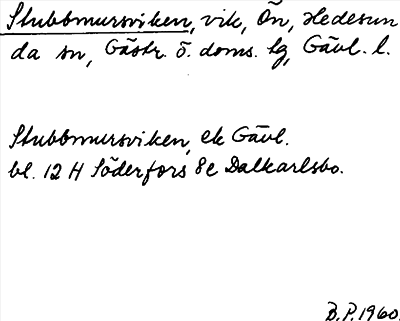 Stubbmursviken, vik, Ön, Hedesun
da sn, Gästr. ö. doms. lg, Gävl. l.
Stubbmursviken, ek Gävl.
bl. 12 H Söderfors 8e Dalkarlsbo.
B.P. 1960.